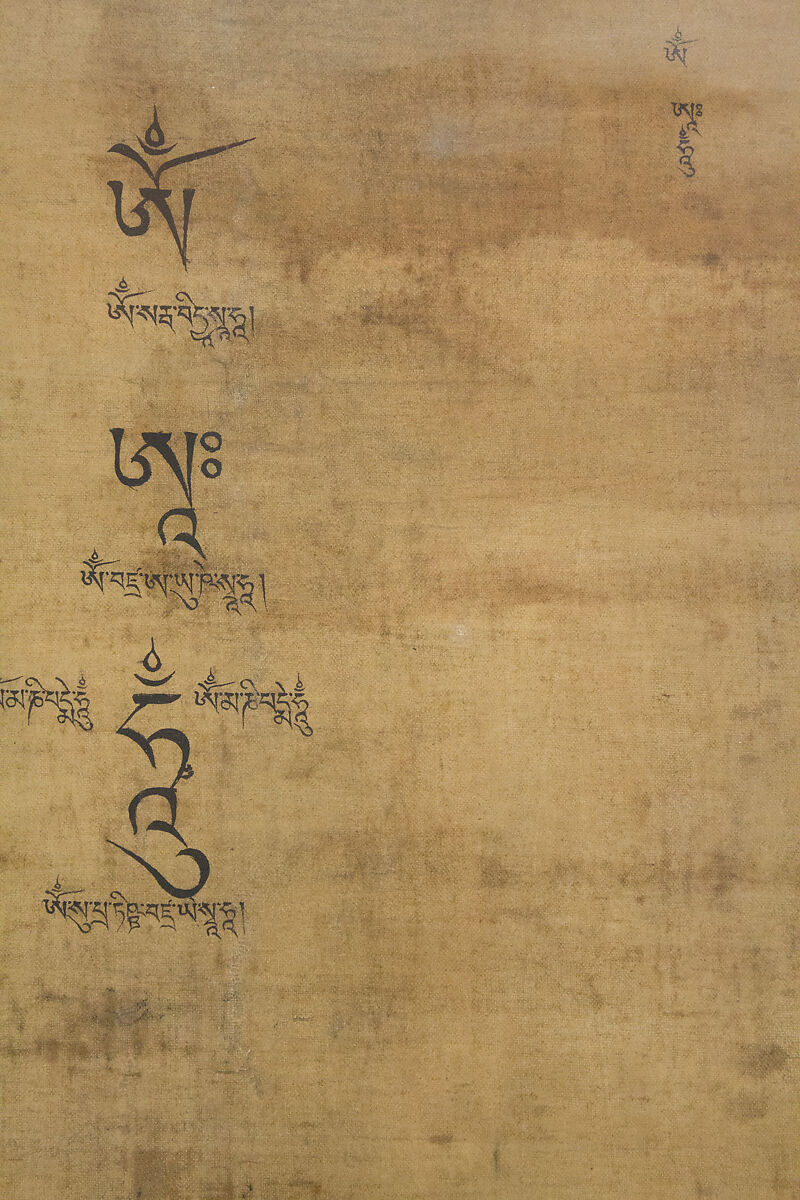 ཨོཾ
ཨཱཿ
ཧཱུྃ
ཨོཾ
ཨོཾ་སརྦ་བིདྱཱ་སྭཱ་ཧཱ།
ཨཱཿ
ཨོཾ་བཛྲ་ཨ་ཡུ་ཥེ་སྭཱ་ཧཱ།
མ་ཎི་པདྨེ་ཧཱུྃ ཨོཾ་མ་ཎི་པདྨེ་ཧཱུྃ
ཧཱུྃ
ཨོཾ་སུ་པྲ་ཏིཥྛ་བཛྲ་ཡེ་སྭཱ་ཧཱ།